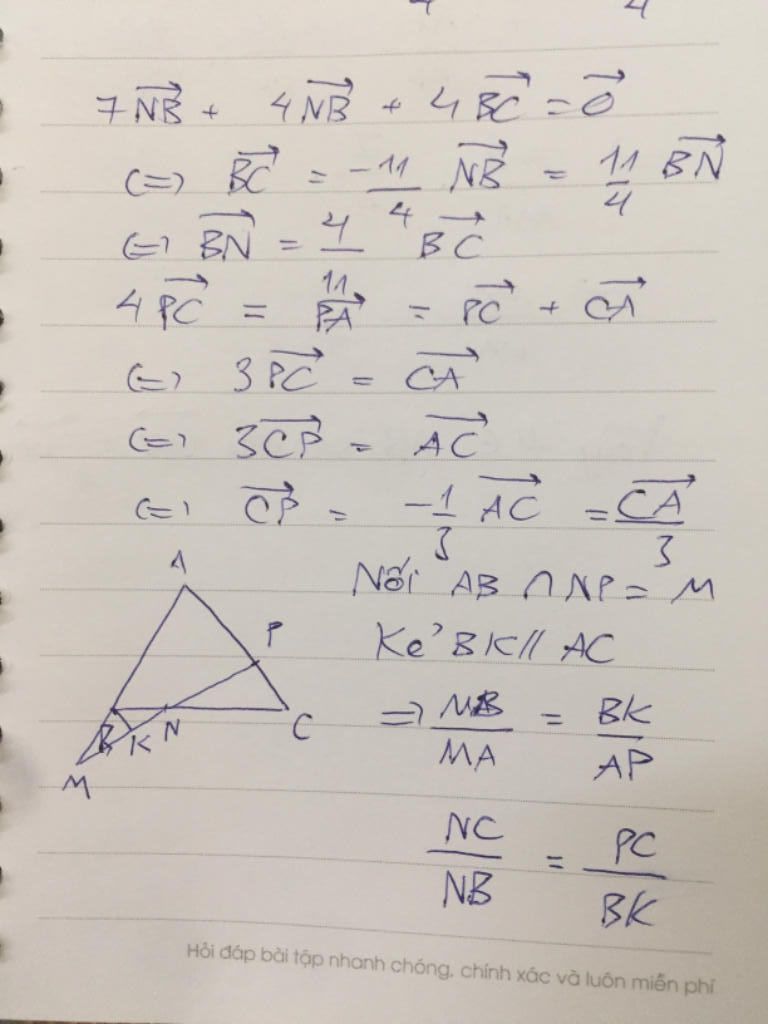 4 4
7NB⃗ + 4NB⃗ + 4BC⃗ = 0⃗
(=) BC⃗ = -11/4 NB⃗ = 11/4 BN⃗
(=) BN⃗ = 4/11 BC⃗
4PC⃗ = PA⃗ = PC⃗ + CA⃗
(=) 3PC⃗ = CA⃗
(=) 3CP⃗ = AC⃗
(=) CP⃗ = -1/3 AC⃗ = CA⃗/3
A
Nối AB ∩ NP = M
P
Kẻ BK // AC
B K N C
M
=) MB/MA = BK/AP
NC/NB = PC/BK
Hỏi đáp bài tập nhanh chóng, chính xác và luôn miễn phí